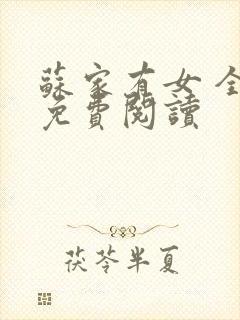 蘇家有女 全
免費閱讀
茯苓半夏